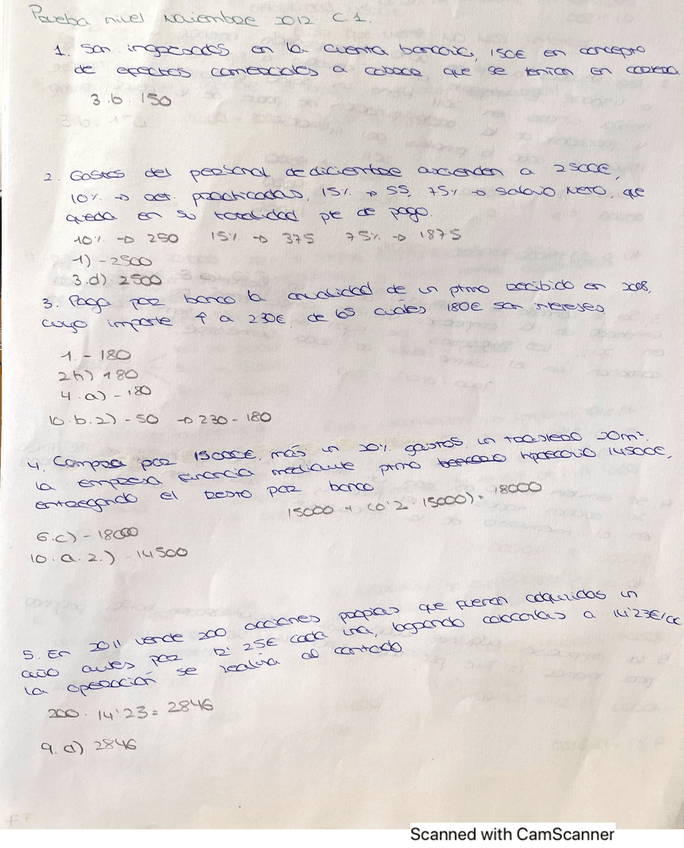 Prueba nivel Noviembre 2012 C.1.
1. Son ingresados en la cuenta bancaria, 150€ en concepto
de efectos comerciales a cobrar que se tenían en cartera
3.b. 150
2. Gastos del personal de diciembre ascienden a 2500€,
10% → ret. practicadas, 15% → SS, 75% → Salario Neto, que
queda en su totalidad pte de pago.
10% → 250 15% → 375 75% → 1875
1) - 2500
3.d) 2500
3. Paga por banco la anualidad de un ptmo recibido en 2008,
cuyo importe ↑ a 230€, de los cuales 180€ son intereses
1. - 180
2.h) 180
4. a) - 180
10. b. 2) - 50 → 230 - 180
4. Compra por 15000€, más un 20% gastos un terreno 20m².
la empresa financia mediante ptmo hipotecario 14500€,
entregando el resto por banco.
15000 + (0'2 · 15000) = 18000
6.c) - 18000
10. a. 2.) 14500
5. En 2011 vende 200 acciones propias que fueron adquiridas un
año antes por 12'25€ cada una, logrando colocarlas a 14'23€/acc
la operación se realiza al contado
200 · 14'23 = 2846
9. a) 2846
Scanned with CamScanner